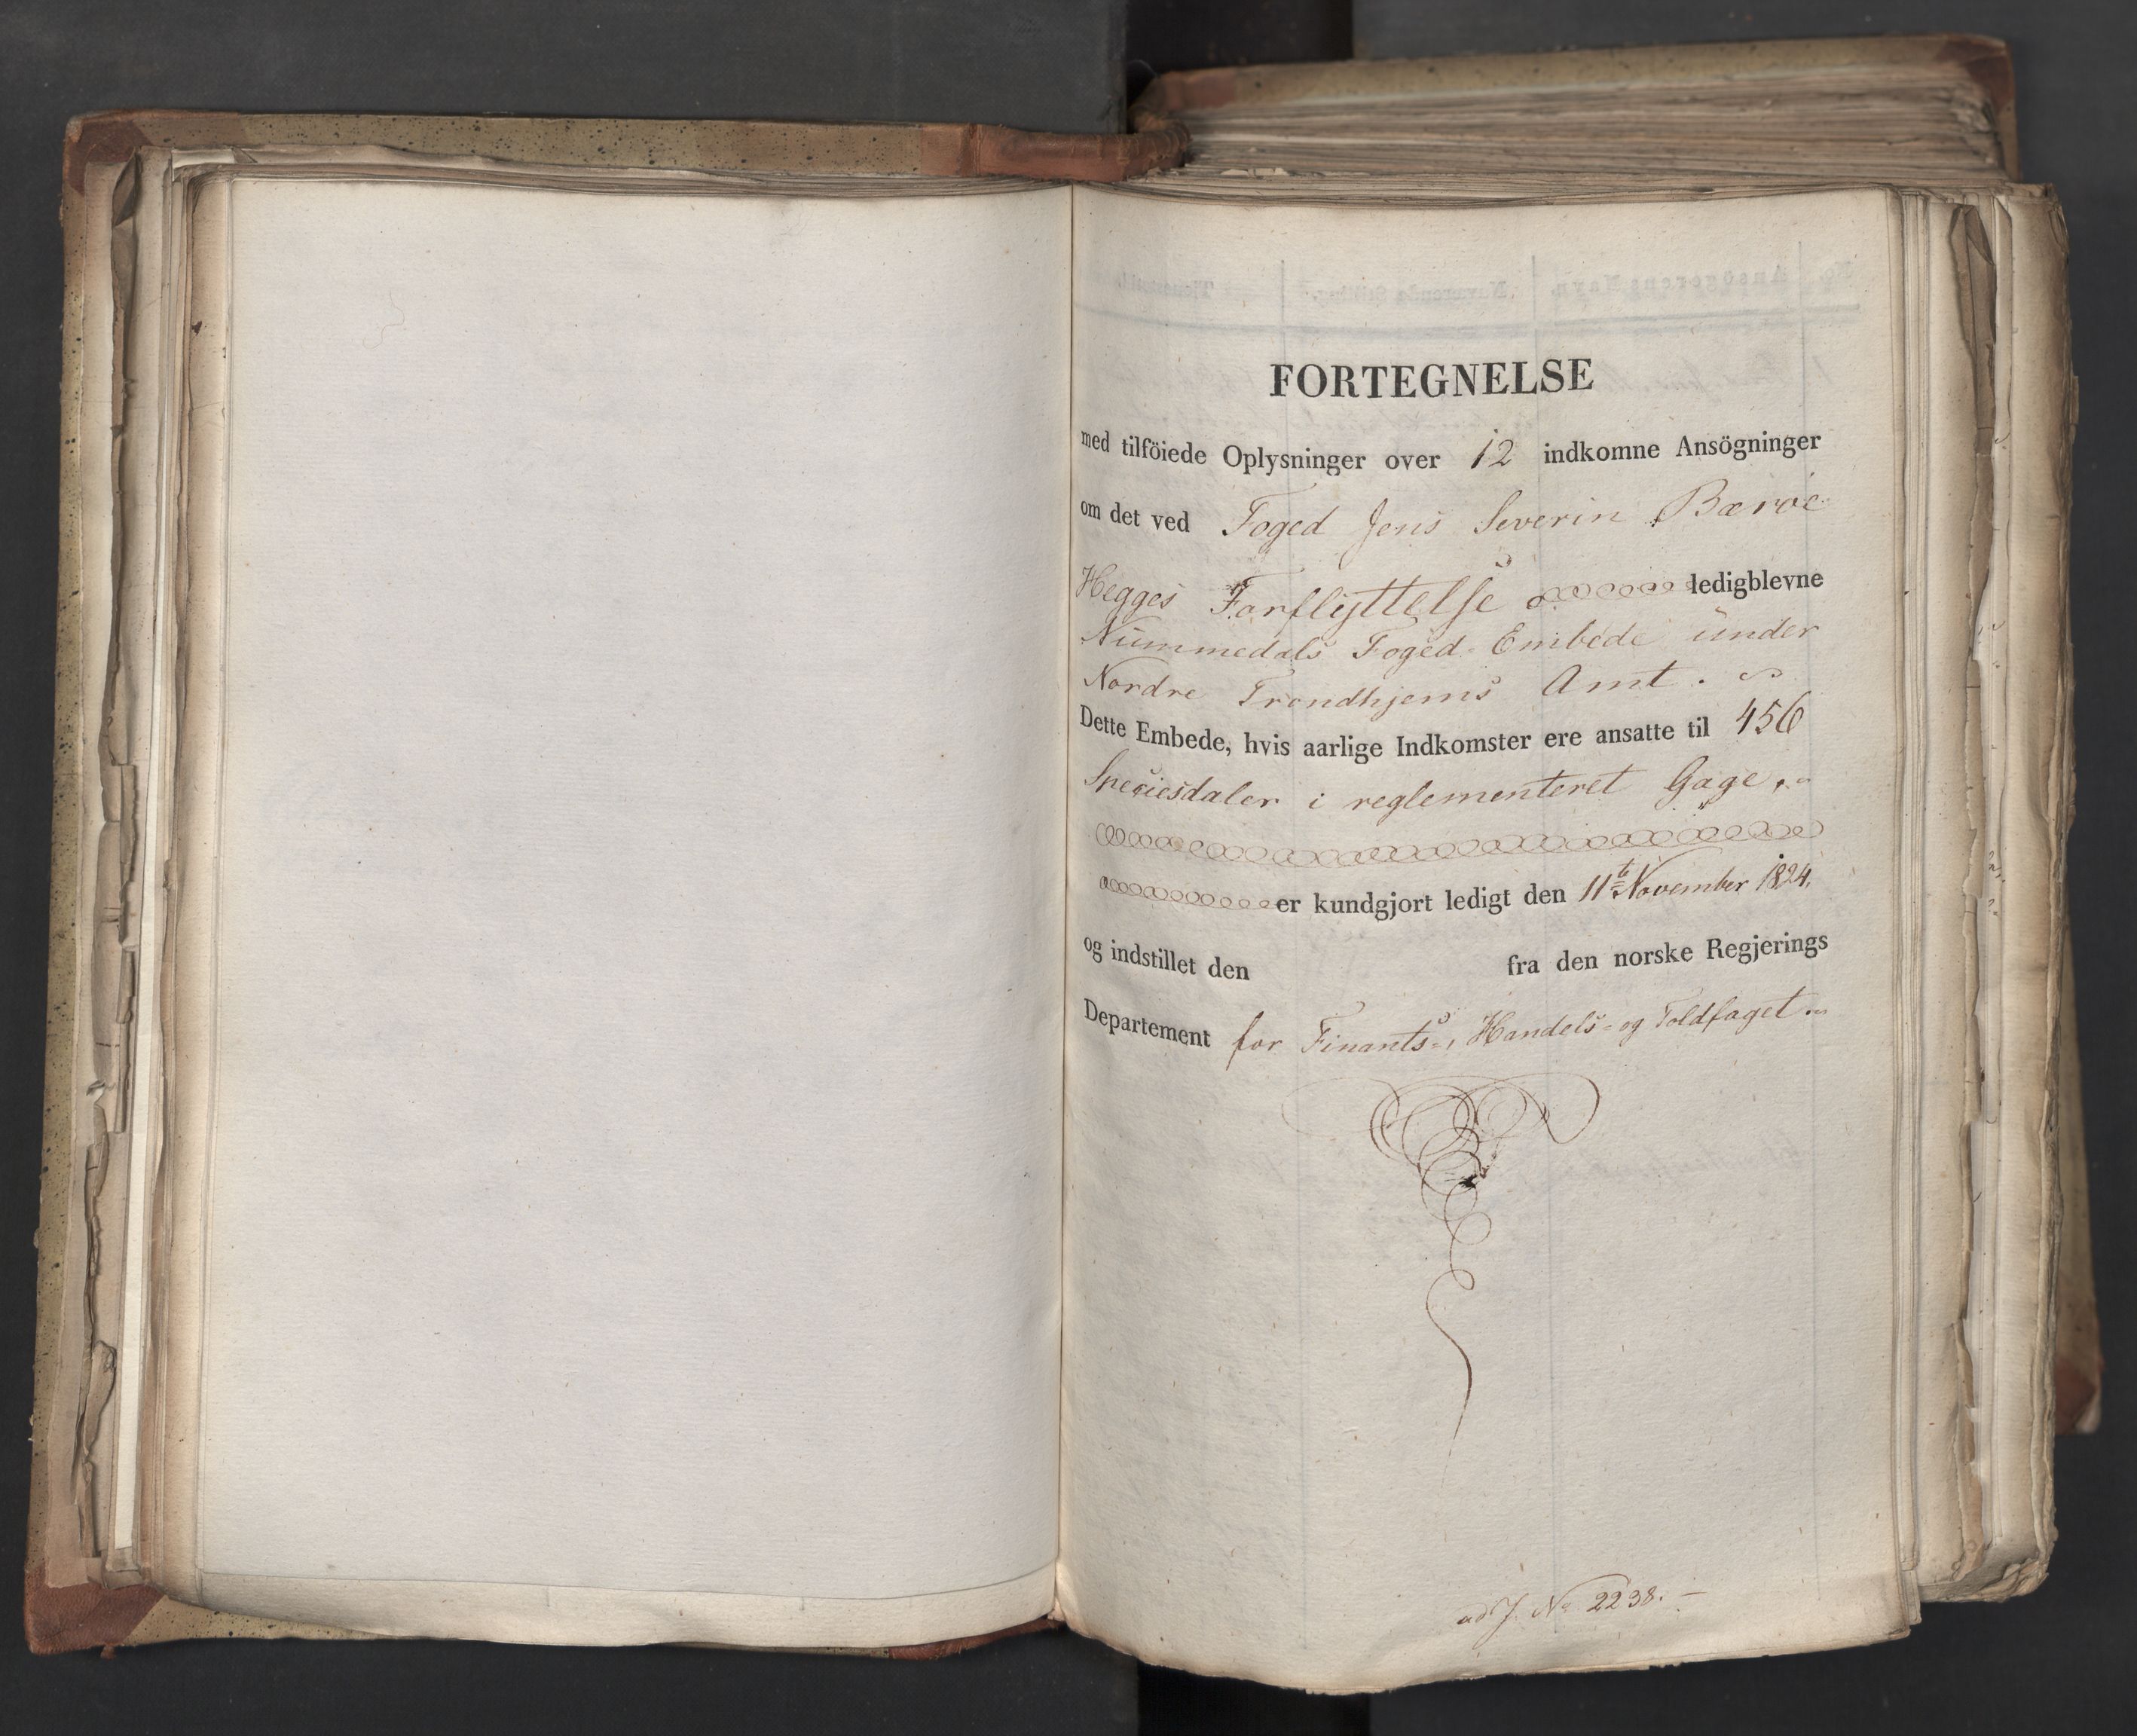 FORTEGNELSE
med tilföiede Oplysninger over 12 indkomne Ansögninger
om det ved Foged Jens Severin Bæroe
Hegges Forflyttelse ledigblevne
Nummedals Foged-Embede under
Nordre Trondhjems Amt.
Dette Embede, hvis aarlige Indkomster ere ansatte til 456
Speciesdaler i reglementeret Gage,
er kundgjort ledigt den 11te November 1824,
og indstillet den fra den norske Regjerings
Departement for Finants-, Handels- og Toldfaget.
ad J. No 2238.